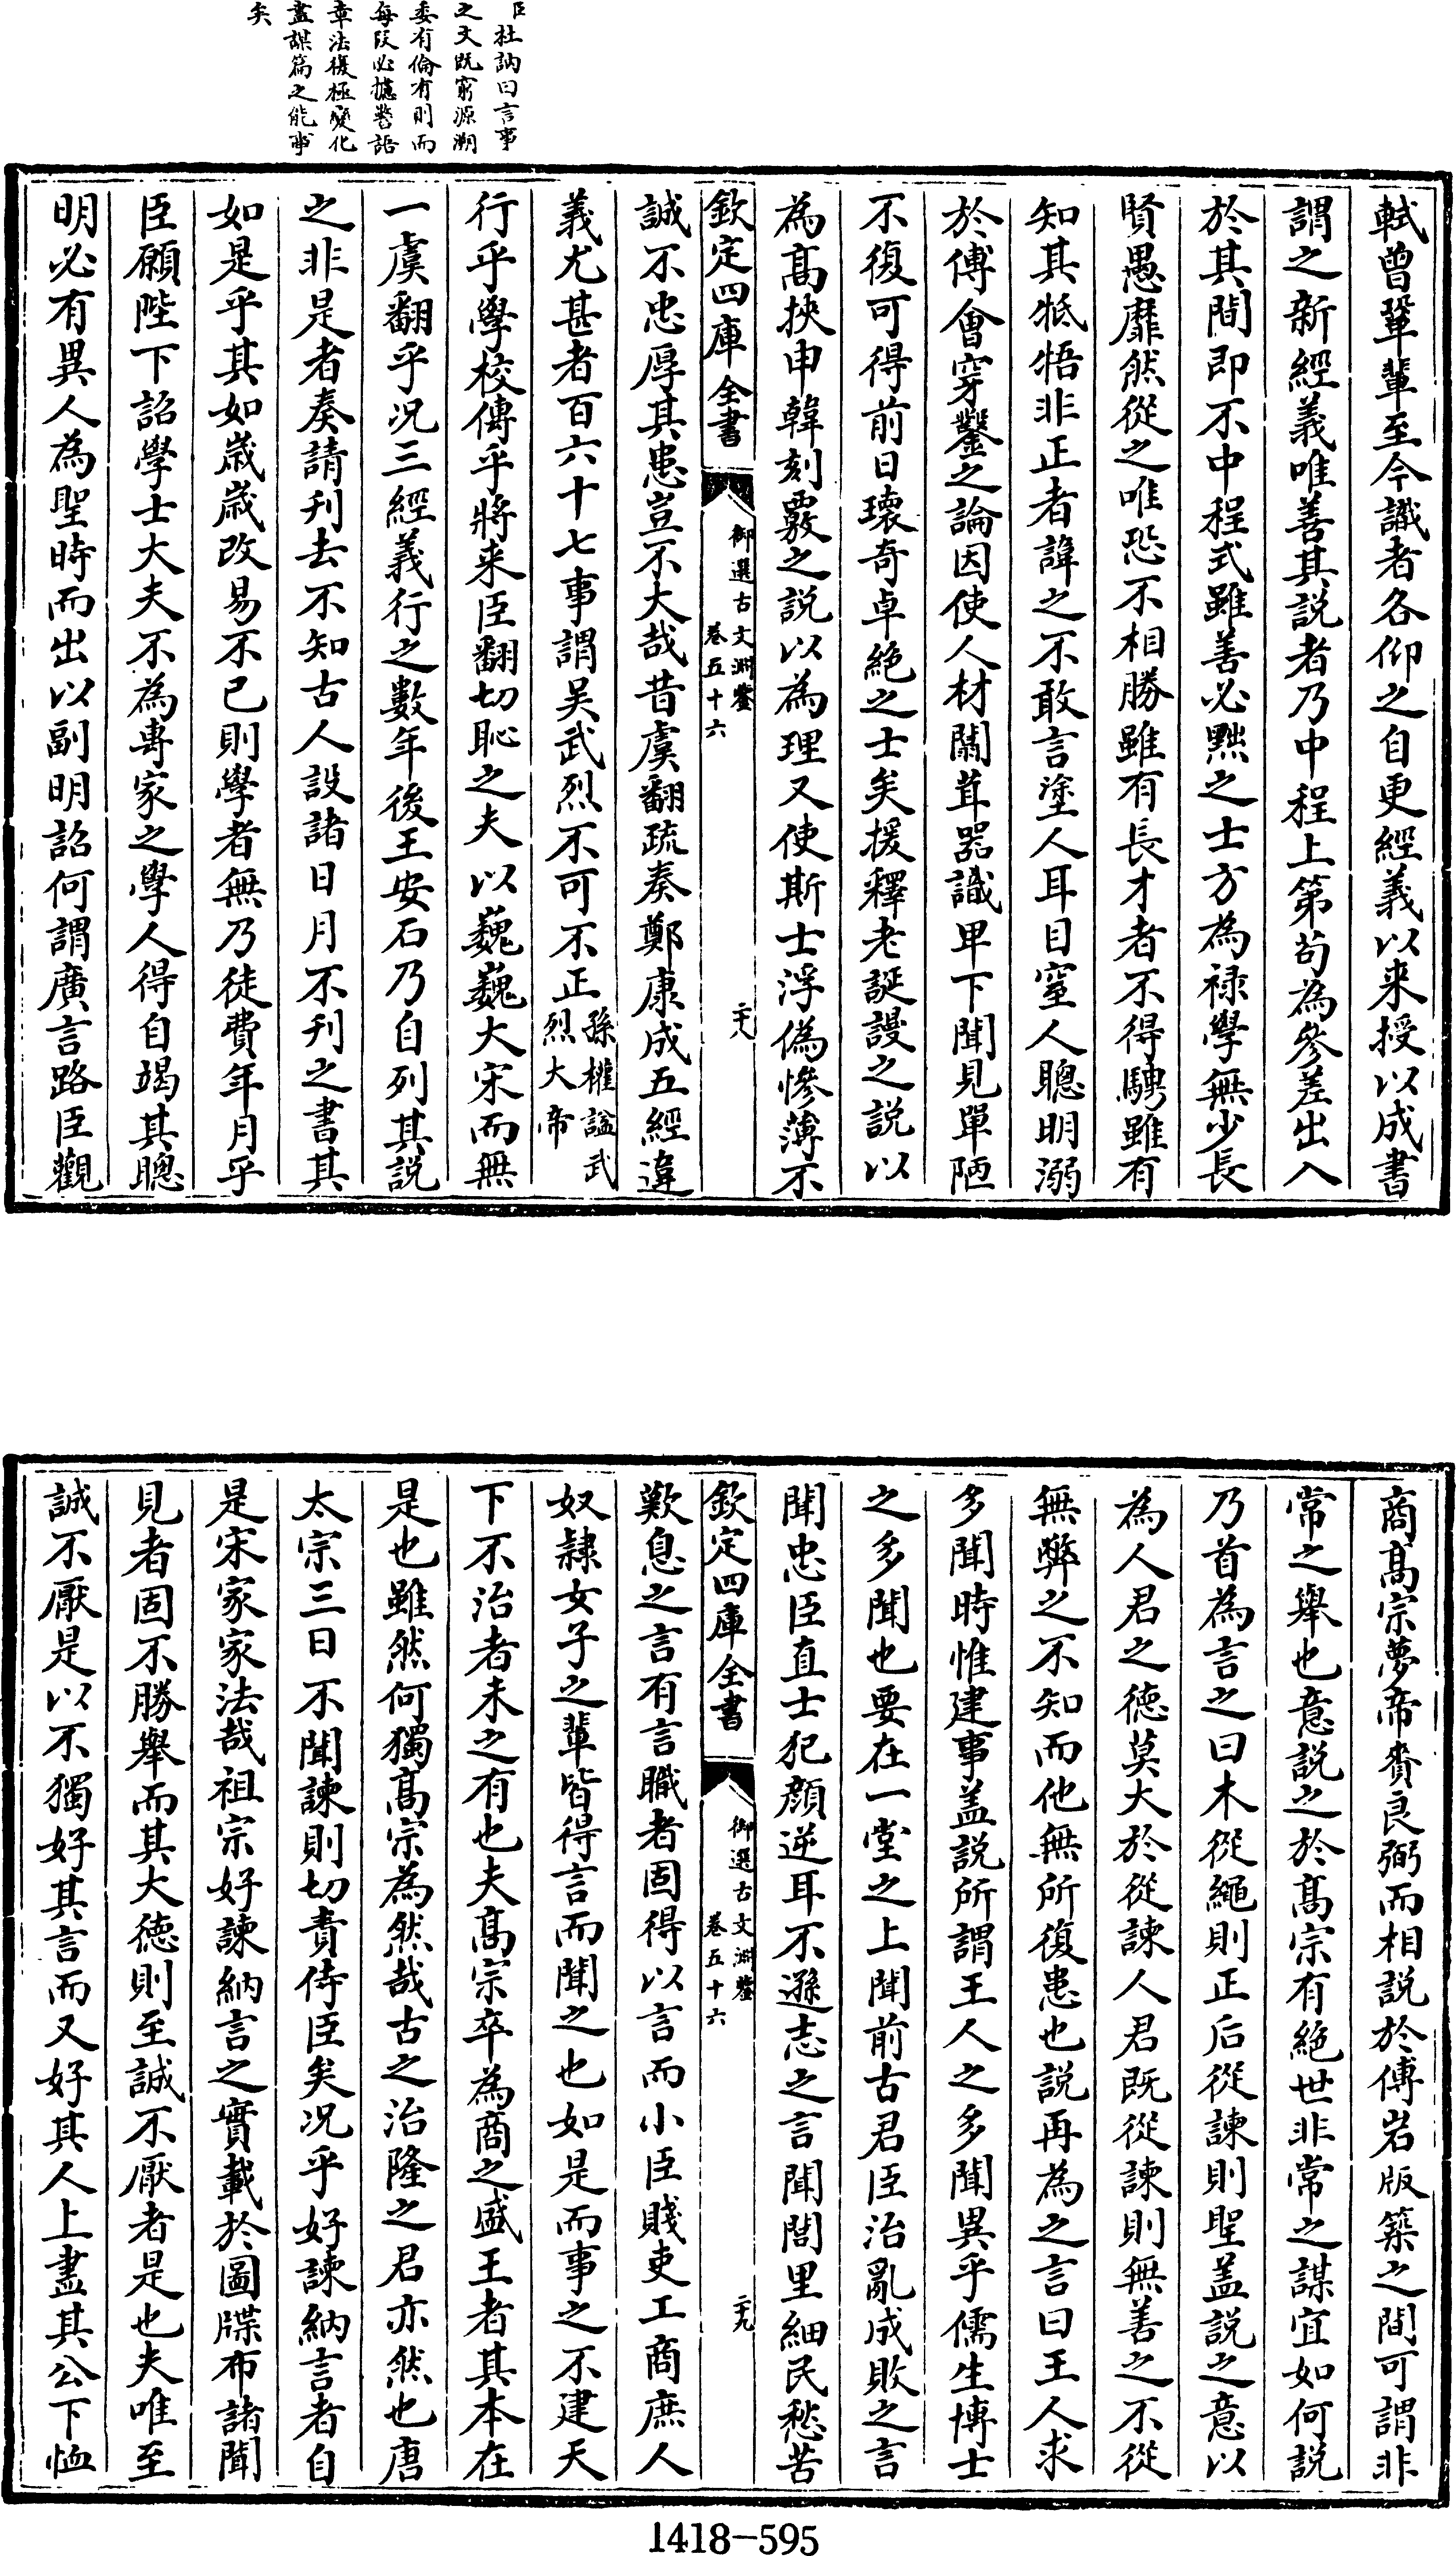 臣杜訥曰言事
之文既窮源溯
委有倫有則而
每段必摅警語
章法復極變化
盡謀篇之能事
矣
軾曾鞏輩至今識者各仰之自更經義以来授以成書
謂之新經義唯善其説者乃中程上第茍為參差出入
於其間即不中程式雖善必黜之士方為禄學無少長
賢愚靡然從之唯恐不相勝雖有長才者不得騁雖有
知其牴牾非正者諱之不敢言塗人耳目窒人聰明溺
於傅會穿鑿之論因使人材闒茸器識卑下聞見單陋
不復可得前日瓌奇卓絶之士矣援釋老誕謾之説以
為髙挾申韓刻覈之説以為理又使斯士浮偽慘薄不
欽定四庫全書
御選古文淵鑒
卷五十六
二十八
誠不忠厚其患豈不大哉昔虞翻疏奏鄭康成五經違
義尤甚者百六十七事謂吴武烈不可不正孫權諡武烈大帝
行乎學校傳乎將来臣翻切恥之夫以巍巍大宋而無
一虞翻乎况三經義行之數年後王安石乃自列其説
之非是者奏請刋去不知古人設諸日月不刋之書其
如是乎其如歳歳改易不已則學者無乃徒費年月乎
臣願陛下詔學士大夫不為專家之學人得自竭其聰
明必有異人為聖時而出以副明詔何謂廣言路臣觀
商髙宗夢帝賚良弼而相説於傅岩版築之間可謂非
常之舉也意説之於髙宗有絶世非常之謀宜如何説
乃首為言之曰木從繩則正后從諫則聖盖説之意以
為人君之徳莫大於從諫人君既從諫則無善之不從
無弊之不知而他無所復患也説再為之言曰王人求
多聞時惟建事盖説所謂王人之多聞異乎儒生博士
之多聞也要在一堂之上聞前古君臣治亂成敗之言
聞忠臣直士犯顔逆耳不遜志之言聞閭里細民愁苦
欽定四庫全書
御選古文淵鑒
卷五十六
二十九
歎息之言有言職者固得以言而小臣賤吏工商庶人
奴隸女子之輩皆得言而聞之也如是而事之不建天
下不治者未之有也夫髙宗卒為商之盛王者其本在
是也雖然何獨髙宗為然哉古之治隆之君亦然也唐
太宗三日不聞諫則切責侍臣矣况乎好諫納言者自
是宋家家法哉祖宗好諫納言之實載於圖牒布諸聞
見者固不勝舉而其大徳則至誠不厭者是也夫唯至
誠不厭是以不獨好其言而又好其人上盡其公下恤
1418-595